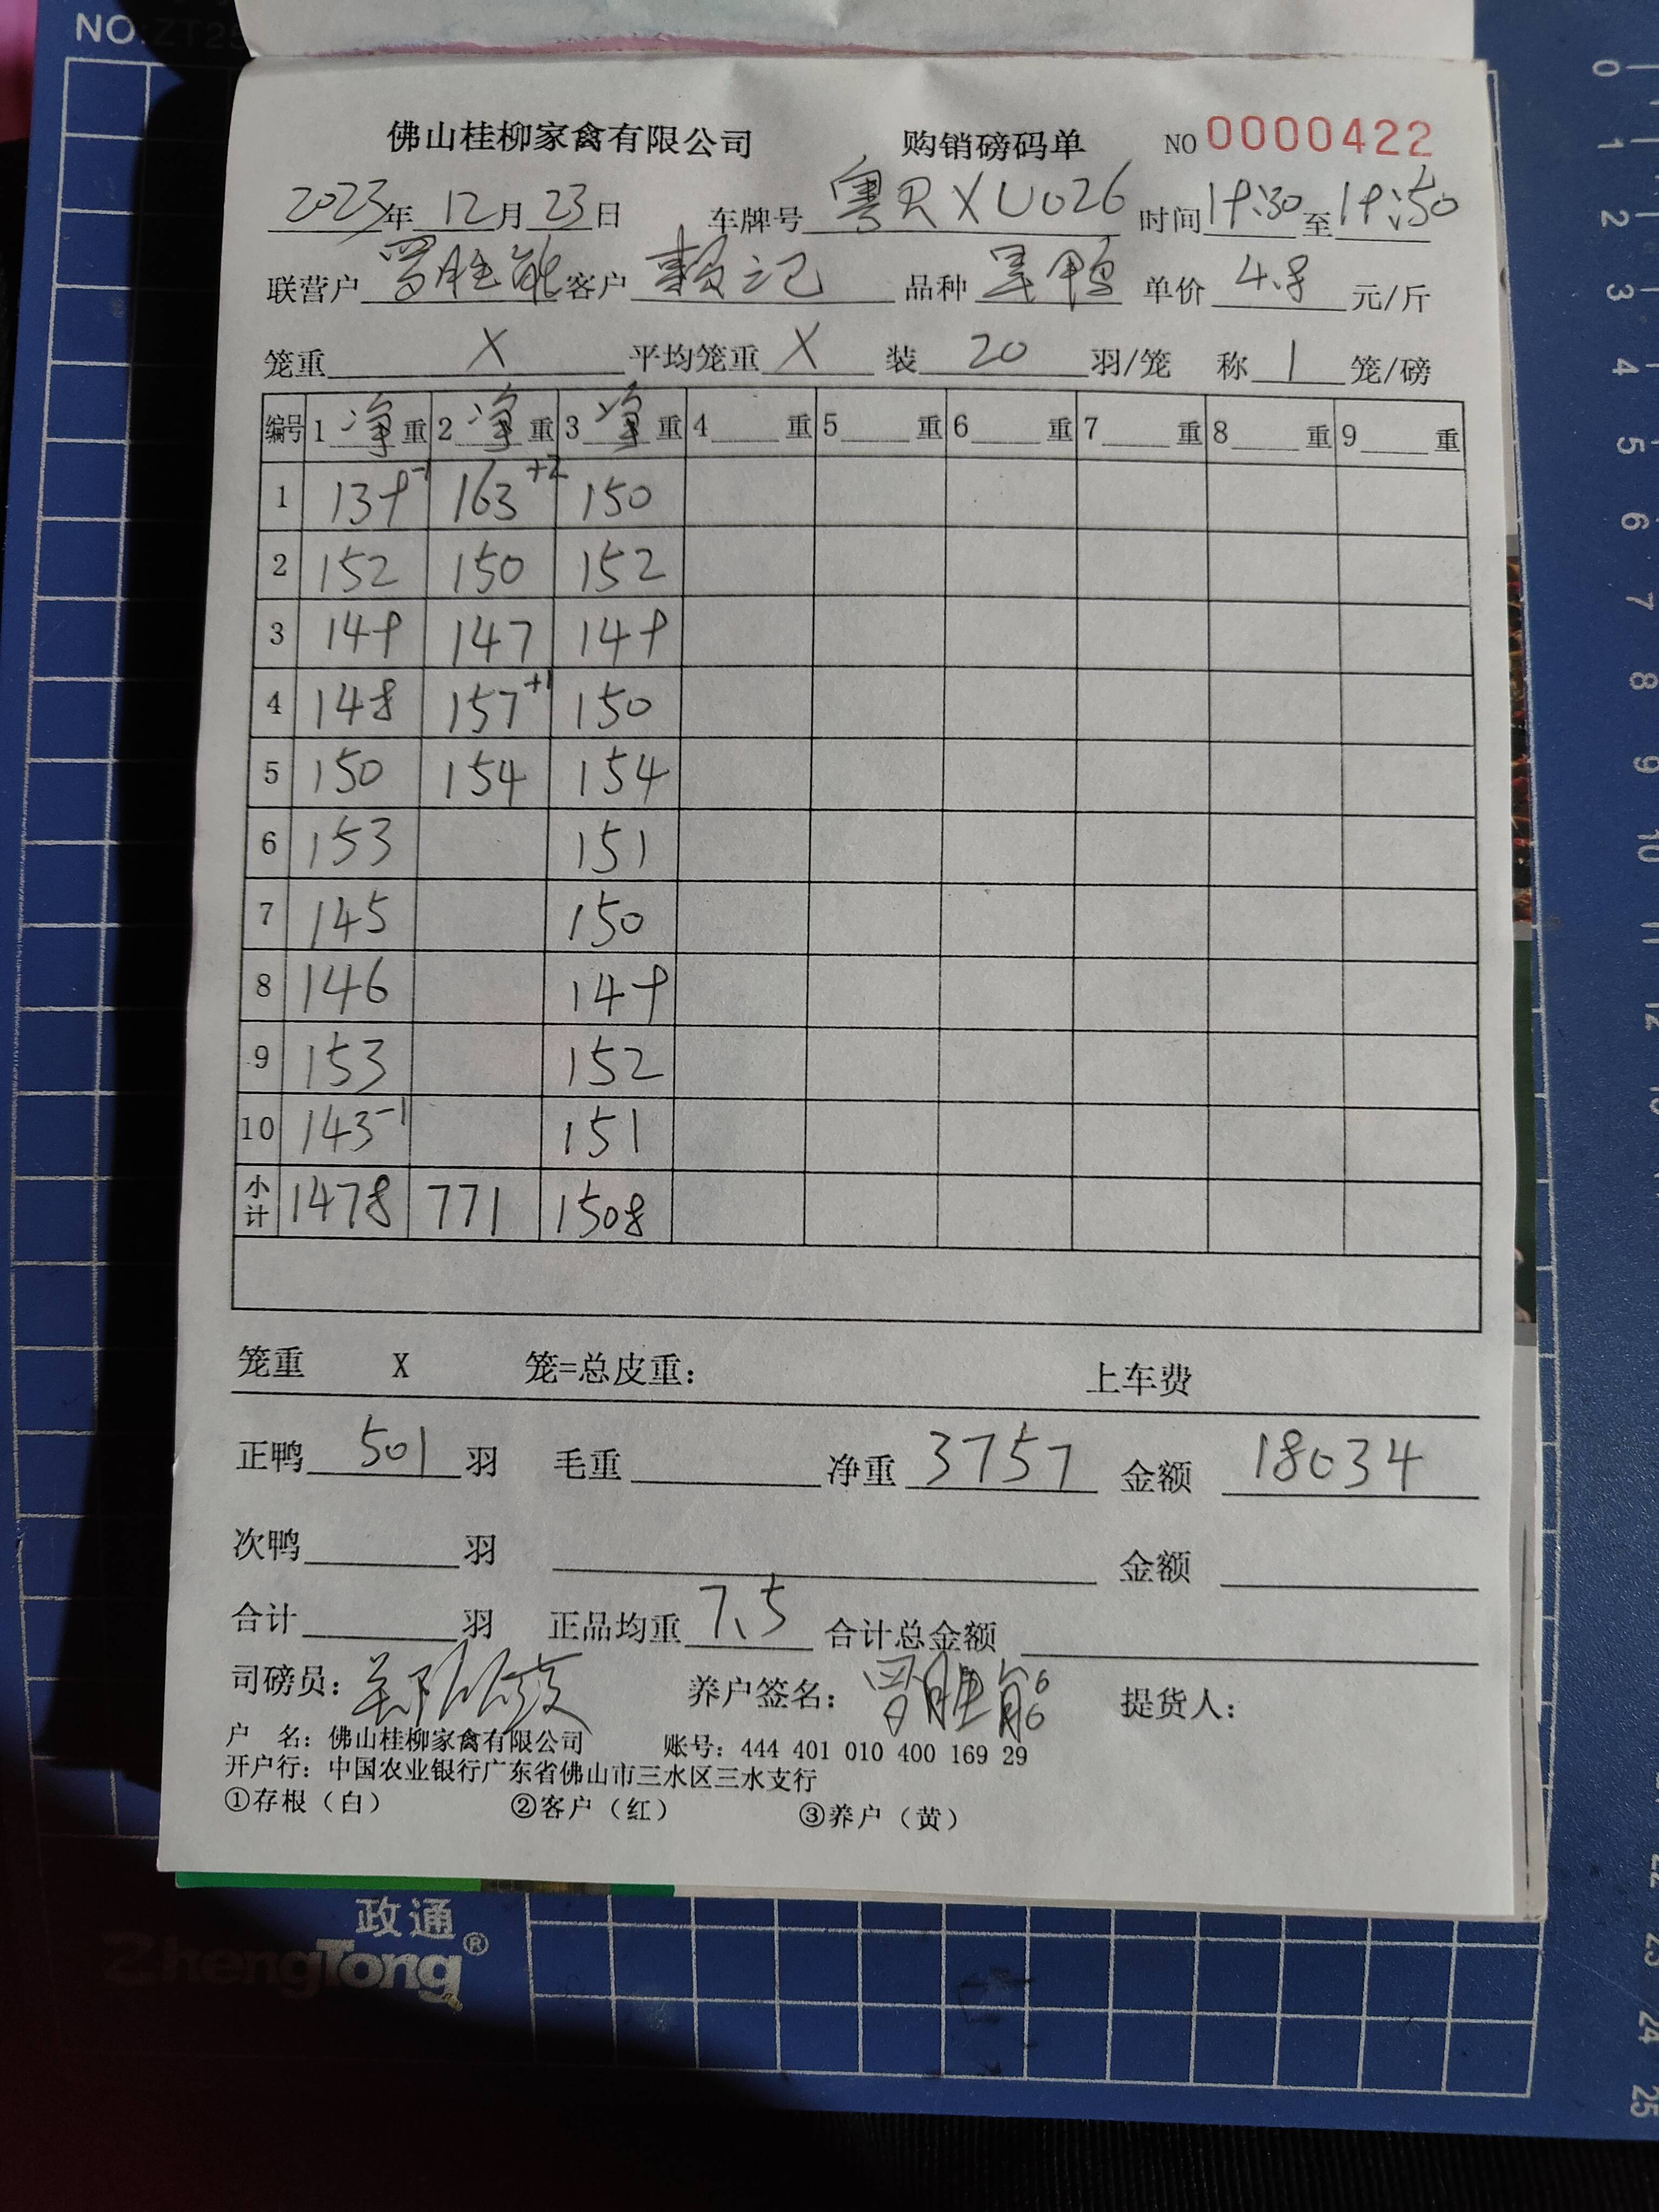 NO:ZT25
佛山桂柳家禽有限公司 购销磅码单 NO 0000422
2023年 12月 23日 车牌号 粤RXU026 时间 19:30 至 19:50
联营户 罗胜能 客户 赖记 品种 单价 4.8 元/斤
笼重 X 平均笼重 X 装 20 羽/笼 称 1 笼/磅
编号 1 净 重 2 净 重 3 净 重 4 重 5 重 6 重 7 重 8 重 9 重
1 139-1 163+2 150
2 152 150 152
3 149 147 149
4 148 157+1 150
5 150 154 154
6 153 151
7 145 150
8 146 149
9 153 152
10 143-1 151
小计 1478 771 1508
笼重 X 笼=总皮重: 上车费
正鸭 501 羽 毛重 净重 3757 金额 18034
次鸭 羽 金额
合计 羽 正品均重 7.5 合计总金额
司磅员: 养户签名: 罗胜能 提货人:
户 名: 佛山桂柳家禽有限公司 账号: 444 401 010 400 169 29
开户行: 中国农业银行广东省佛山市三水区三水支行
①存根（白） ②客户（红） ③养户（黄）
政通
ZhengTong®
0
1
2
3
4
5
6
7
8
9
10
11
12
22
23
24
25